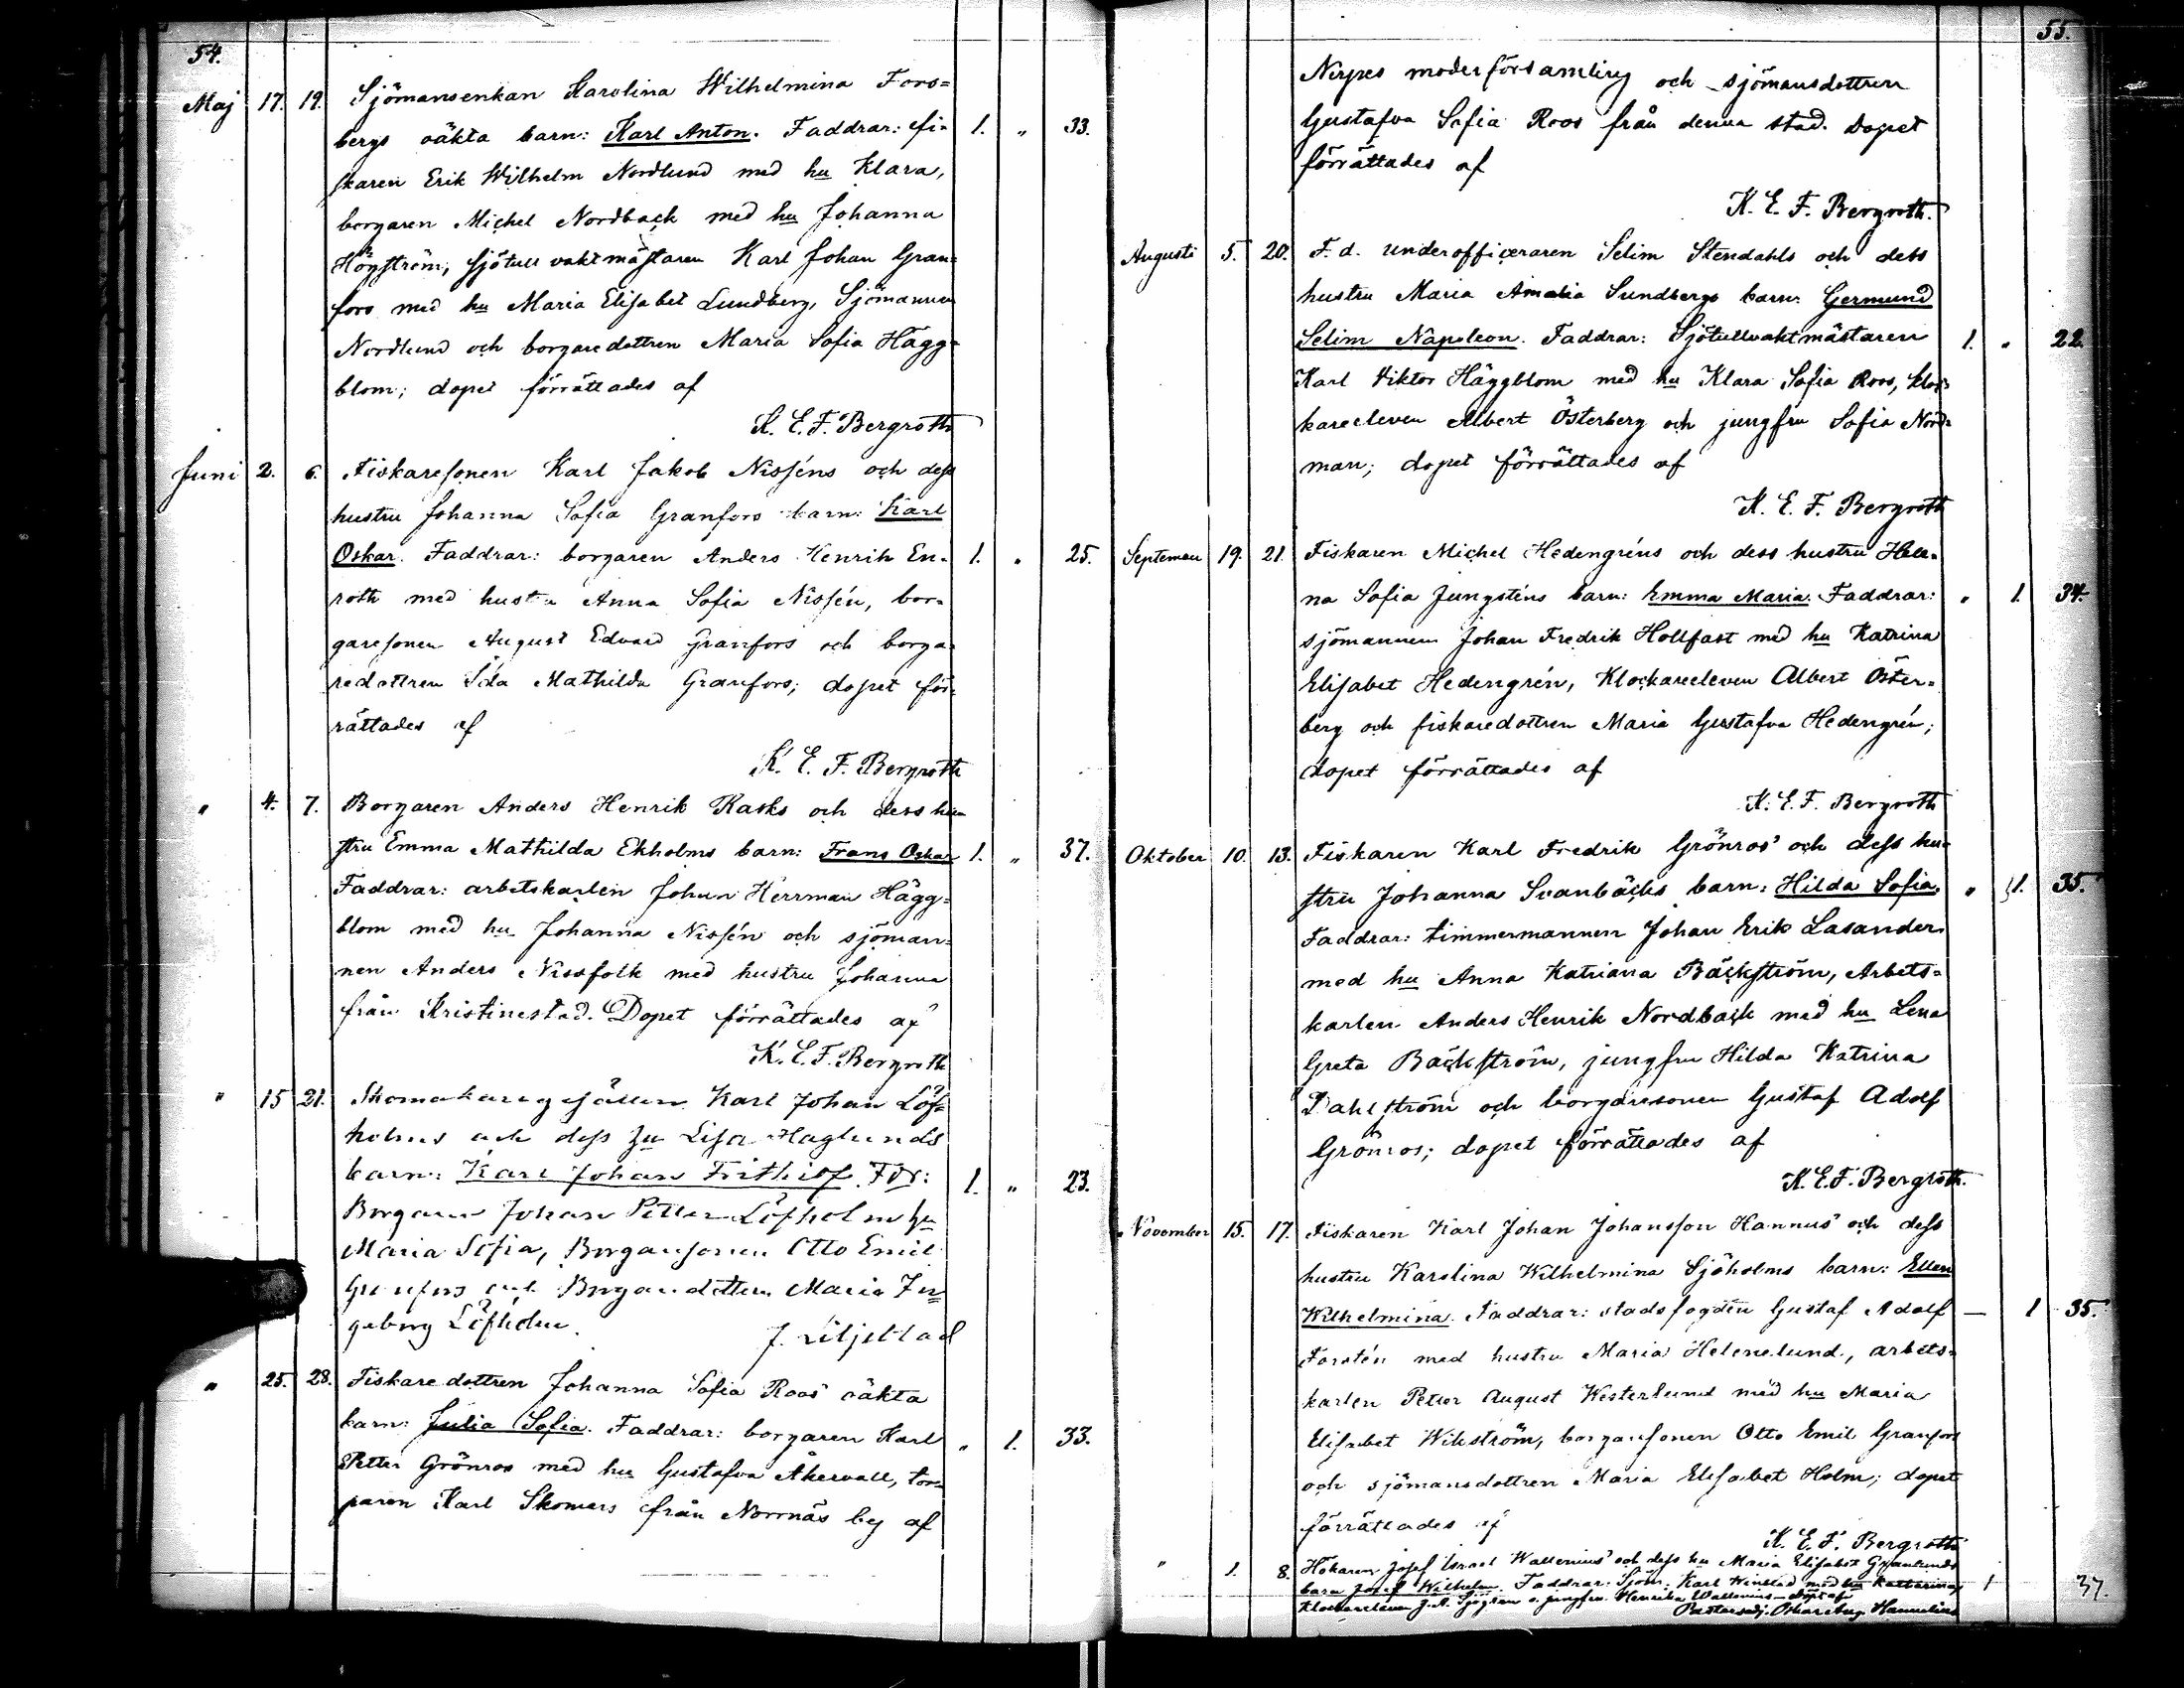 54.
Maj 17. 19. Sjömansenkan Karolina Wilhelmina Fors=
bergs oäkta barn: Karl Anton. Faddrar: fi- 1. " 33.
skaren Erik Wilhelm Nordlund med hu Klara,
borgaren Michel Nordback med hu Johanna
Högström, sjötullvaktmästaren Karl Johan Gran-
fors med hu Maria Elisabet Lundberg, Sjömannen
Nordlund och borgaredottren Maria Sofia Hägg-
blom; dopet förrättades af
K. E. F. Bergroth
Juni 2. 6. Fiskaresonen Karl Jakob Nisséns och dess
hustru Johanna Sofia Granfors barn: Karl
Oskar. Faddrar: borgaren Anders Henrik En- 1. " 25.
roth med hustru Anna Sofia Nissén, bor-
garesonen August Edvard Granfors och borga-
redottren Ida Mathilda Granfors; dopet för-
rättades af
K. E. F. Bergroth
" 4. 7. Borgaren Anders Henrik Rasks och dess hu-
stru Emma Mathilda Ekholms barn: Frans Oskar 1. " 37.
Faddrar: arbetskarlen Johan Herrman Hägg-
blom med hu Johanna Nissén och sjöman-
nen Anders Nissfolk med hustru Johanna
från Kristinestad. Dopet förrättades af
K. E. F. Bergroth
" 15 21. Skomakaregesällen Karl Johan Löf-
holms och dess hu Lisa Haglunds
barn: Karl Johan Frithiof. Fdr: 1. " 23.
Borgaren Johan Petter Löfholm hu
Maria Sofia, Borgaresonen Otto Emil
Granfors och Borgaredottern Maria In
geborg Löfholm.
J. Liljeblad
" 25. 28. Fiskaredottren Johanna Sofia Roos' oäkta
barn: Julia Sofia. Faddrar: borgaren Karl " 1. 33.
Petter Grönroos med hu Gustafva Åkervall, tor-
paren Karl Skomars från Norrnäs by af
55.
Nerpes moderförsamling och sjömansdottren
Gustafva Sofia Roos från denna stad. Dopet
förrättades af
K. E. F. Bergroth.
Augusti 5. 20. F. d. underofficeraren Selim Stendahls och dess
hustru Maria Amalia Sundbergs barn: Germund
Selim Napoleon. Faddrar: Sjötullvaktmästaren 1. " 22.
Karl Viktor Häggblom med hu Klara Sofia Roos, kloc-
kareeleven Albert Österberg och jungfru Sofia Nord-
man; dopet förrättades af
K. E. F. Bergroth
September 19. 21. Fiskaren Michel Hedengréns och dess hustru Hele-
na Sofia Jungsténs barn: Emma Maria. Faddrar: " 1. 34.
sjömannen Johan Fredrik Hollfast med hu Katrina
Elisabet Hedengrén, Klockareeleven Albert Öster-
berg och fiskaredottren Maria Gustafva Hedengrén;
dopet förrättades af
K. E. F. Bergroth
Oktober 10. 13. Fiskaren Karl Fredrik Grönros' och dess hu-
stru Johanna Svanbäcks barn: Hilda Sofia. " 1. 35.
Faddrar: timmermannen Johan Erik Lasander
med hu Anna Katriana Bäckström, Arbets-
karlen Anders Henrik Nordback med hu Lena
Greta Bäckström, jungfru Hilda Katrina
Dahlström och borgaresonen Gustaf Adolf
Grönros; dopet förrättades af
K. E. F. Bergroth.
November 15. 17. Fiskaren Karl Johan Johansson Hannus' och dess
hustru Karolina Wilhelmina Sjöholms barn: Ellen
Wilhelmina. Faddrar: stadsfogden Gustaf Adolf — 1 35.
Forstén med hustru Maria Helenelund, arbets-
karlen Petter August Westerlund med hu Maria
Elisabet Wikström, borgaresonen Otto Emil Granfors
och sjömansdottren Maria Elisabet Holm; dopet
förrättades af
K. E. F. Bergroth
" 1. 8. Hökaren Josef Israel Wallenius' och dess hu Maria Elisabet Granlunds
barn Josef Wilhelm. Faddrar: Sjöm. Karl Winblad med hu Katharina, 1 37.
Klockareeleven J. A. Sjögren o. jungfru Henrika Wallenius — döpt af
Pastorsadj. Oskar Aug. Hannelius